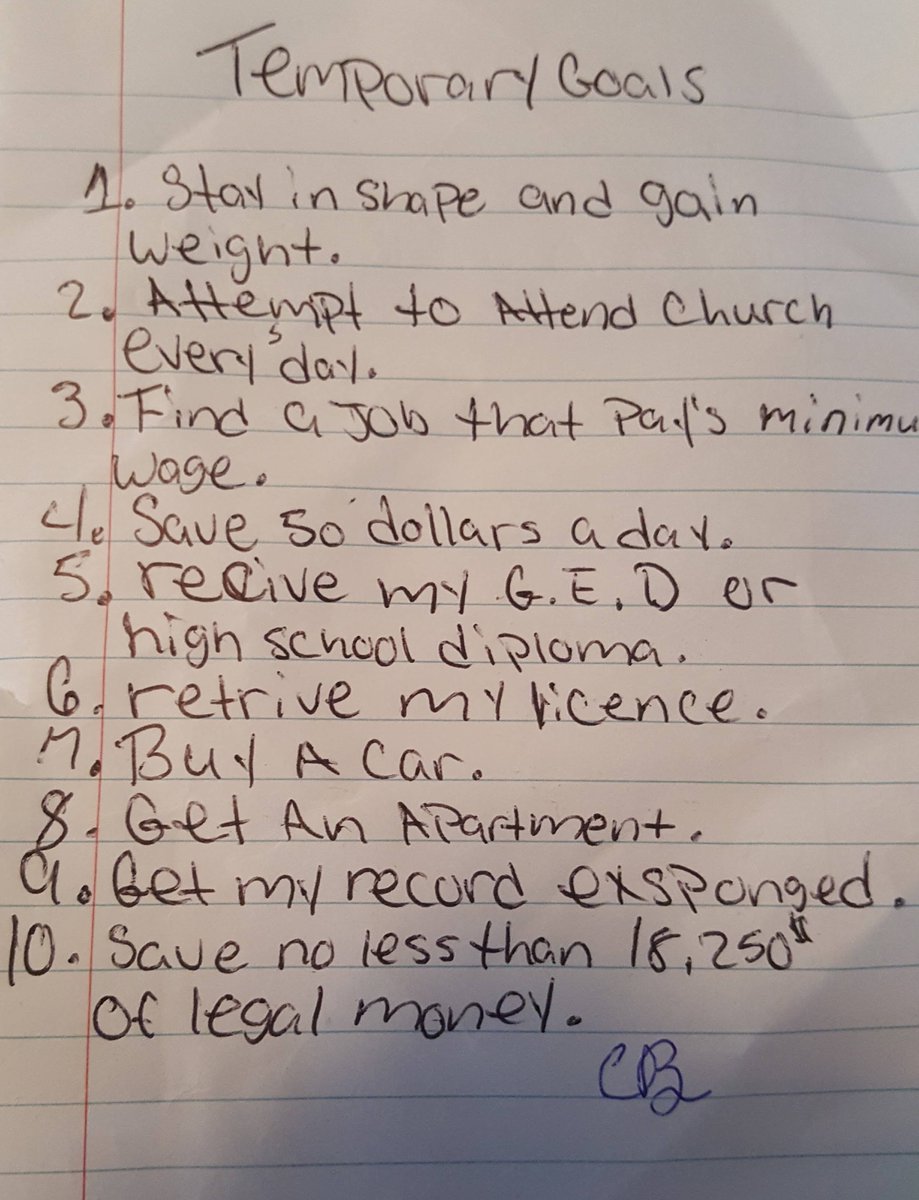 Temporary Goals
1. Stay in shape and gain
weight.
2. Attempt to Attend Church
every's day.
3. Find a Job that Pay's minimu
wage.
4. Save 50 dollars a day.
5. recive my G.E.D or
high school diploma.
6. retrive my licence.
7. Buy A Car.
8. Get An Apartment.
9. Get my record exsponged.
10. Save no less than 18,250$
of legal money.
CB